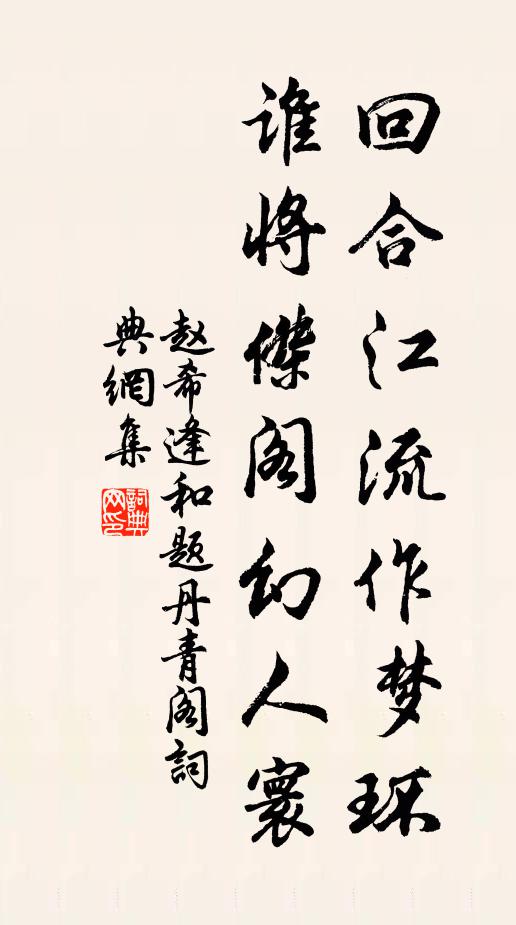 回合江流作梦环
谁将傑阁幻人寰
赵希逢和题丹青阁詞
典網集
詞典网印